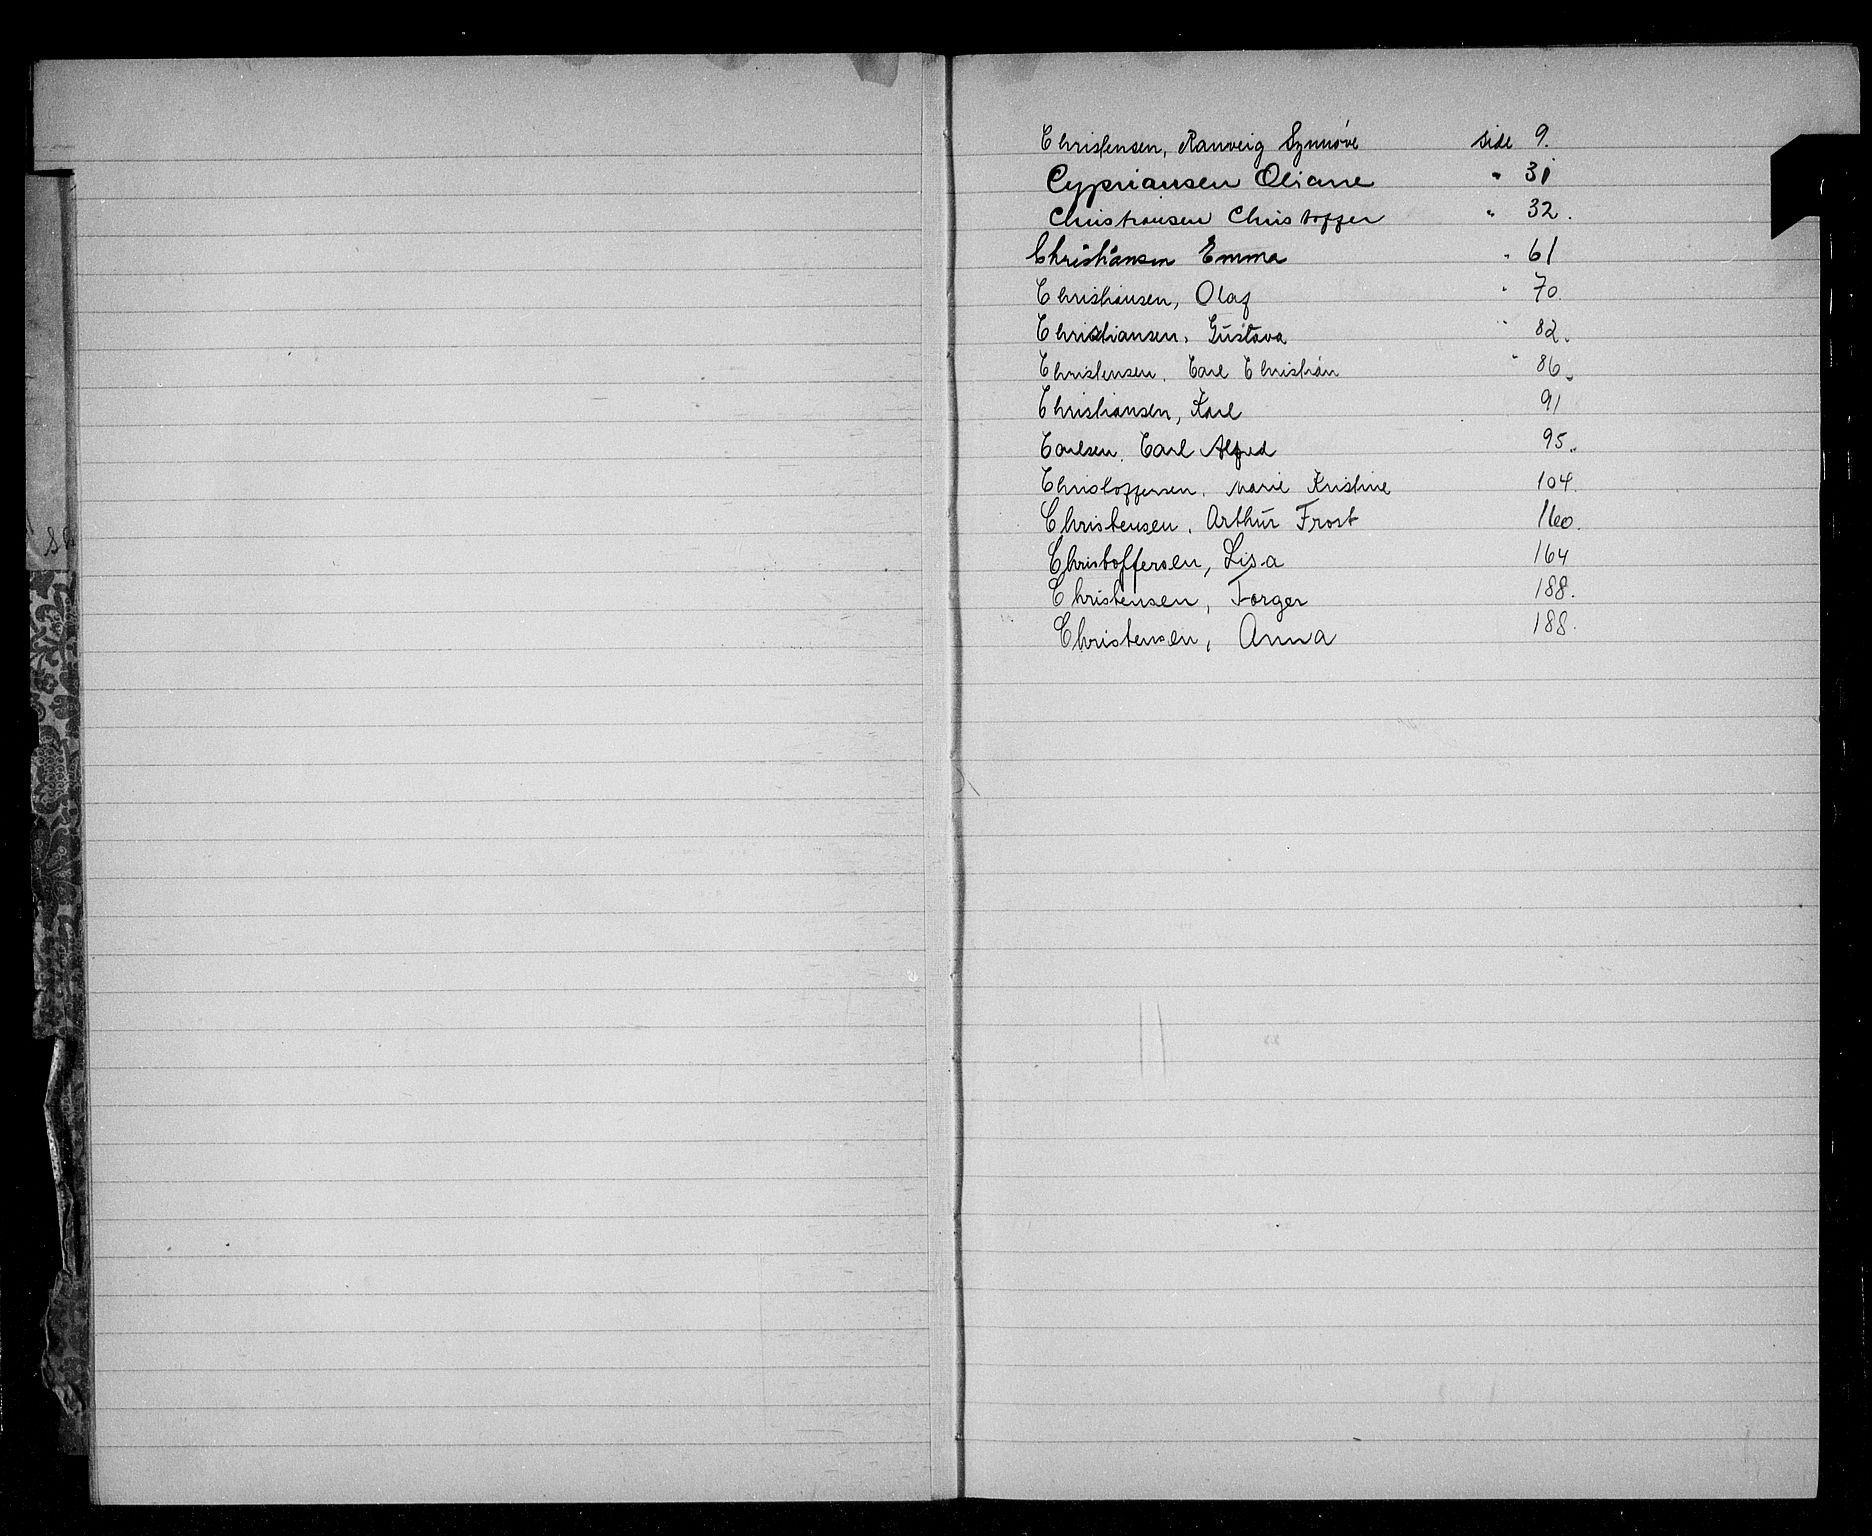 Christensen, Ranveig Synnøve side 9.
Cypriansen Oliane " 31
Christiansen Christoffer " 32.
Christiansen Emma " 61
Christiansen, Olaf " 70.
Christiansen, Gustava " 82.
Christensen, Carl Christian " 86.
Christiansen, Karl 91
Carlsen, Carl Alfred 95.
Christoffersen, Marie Kristine 104.
Christensen, Arthur Frost 160.
Christoffersen, Lisa 164
Christensen, Torger 188.
Christensen, Anna 188.